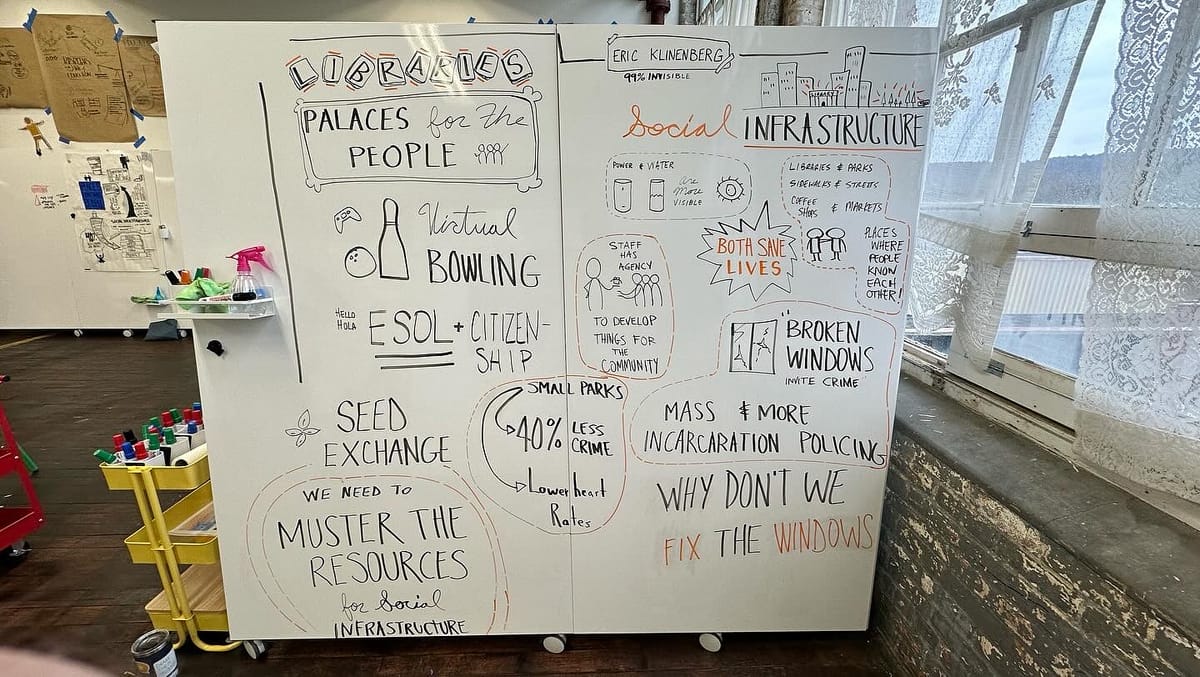 LIBRARIES
PALACES for the
PEOPLE
Virtual
BOWLING
HELLO
HOLA
ESOL + CITIZEN-
SHIP
SEED
EXCHANGE
WE NEED TO
MUSTER THE
RESOURCES
for Social
INFRASTRUCTURE
SMALL PARKS
40% LESS
CRIME
Lower heart
Rates
ERIC KLINENBERG
99% INVISIBLE
LIBRARY
Social INFRASTRUCTURE
POWER & WATER
are
More
VISIBLE
LIBRARIES & PARKS
SIDEWALKS & STREETS
COFFEE
SHOPS & MARKETS
PLACES
WHERE
PEOPLE
KNOW
EACH
OTHER!
BOTH SAVE
LIVES
STAFF
HAS
AGENCY
TO DEVELOP
THINGS FOR
THE
COMMUNITY
"BROKEN
WINDOWS
INVITE CRIME
MASS & MORE
INCARCARATION POLICING
WHY DON'T WE
FIX THE WINDOWS